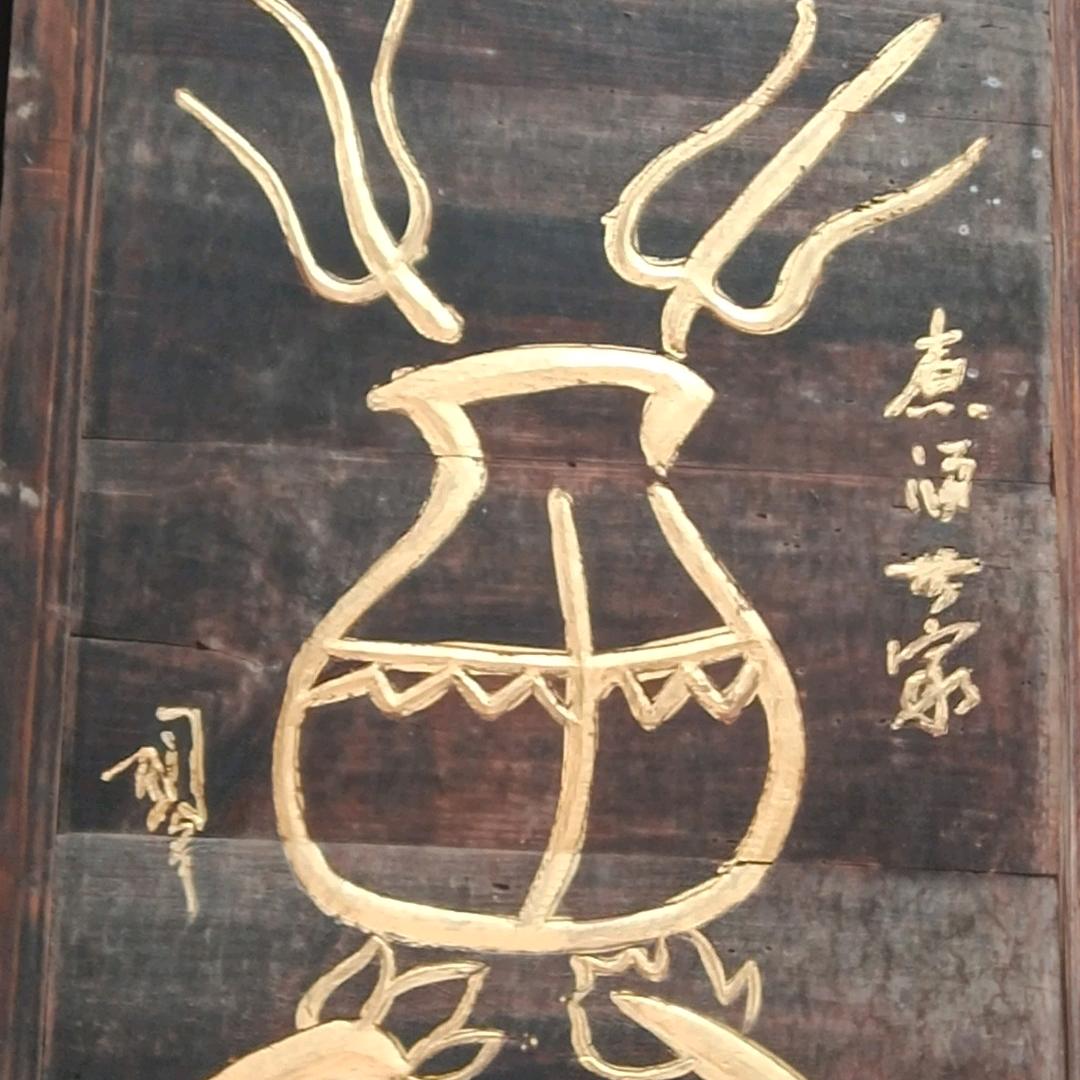 煮酒世家